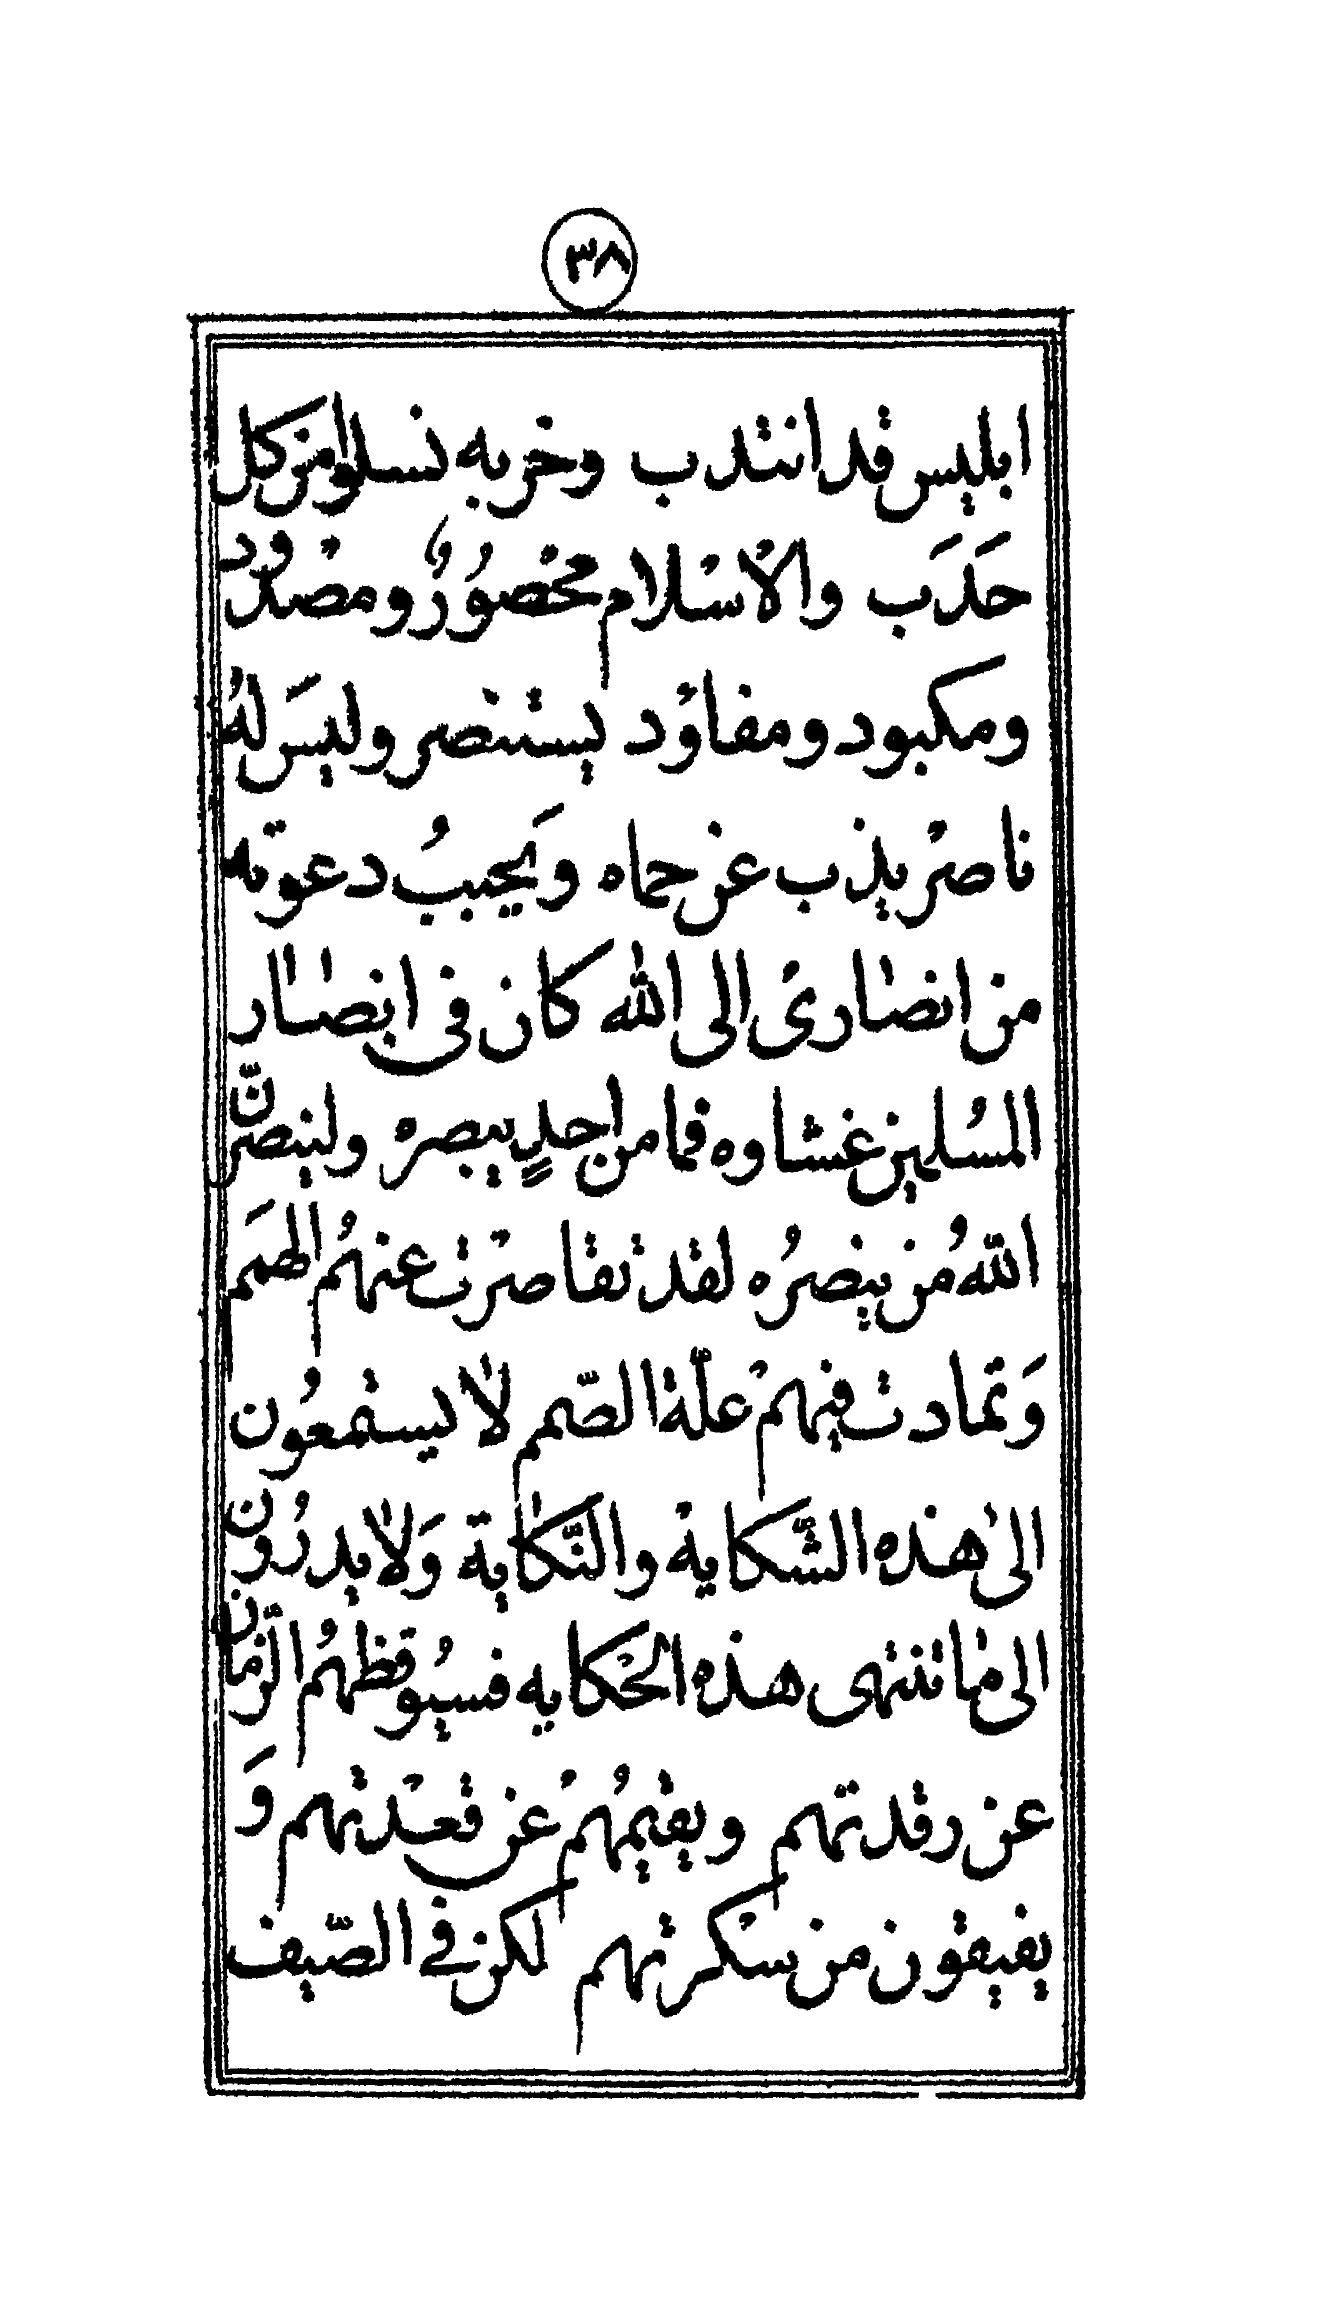 ٣٨
ابليس قد انتدب وحزبه نسلوا من كل
حَدَب والاسْلام محْصُورٌ ومصْدود
ومكبود ومفاوٗد يستنصر وليسَ لهٗ
ناصرْ يذب عن حماه وَيجيبُ دعوته
من انصارىْ الى الله كان فى ابصار
المسُلمين غشاوه فما من احدٍ يبصرہْ ولينصرنّ
اللهُ من ينصرُہ لقد تقاصرْت عنهُم الهمَم
وَتمادت فيهمْ علّة الصّمم لا يستمعُون
الى هذه الشّكاية والنّكاية وَلا يدرُون
الى ما تنتهى هذه الحْكايه فسيُوقظهُم الزّمان
عن رقدتهم ويقيمُهمْ عن قعدْتهم وَ
يفيقون من سكْرتهم لكن في الصّيف